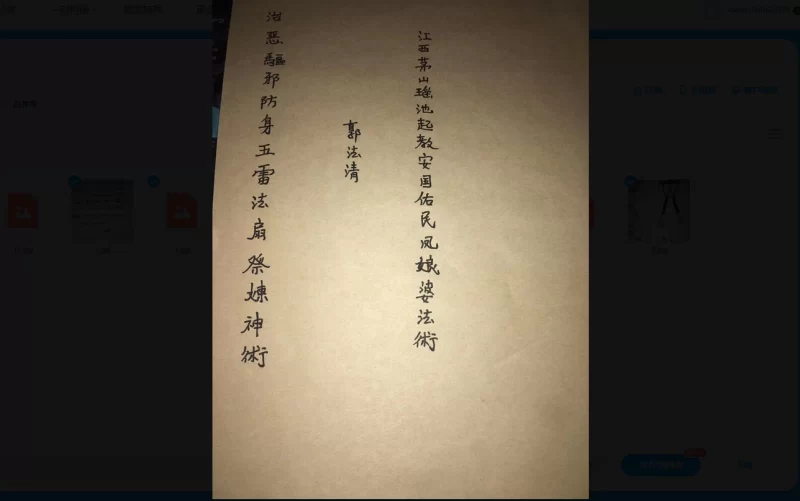 江西茅山瑶池起教安国佑民凤娘婆法術
郭法清
治恶驅邪防身五雷法扇祭煉神術